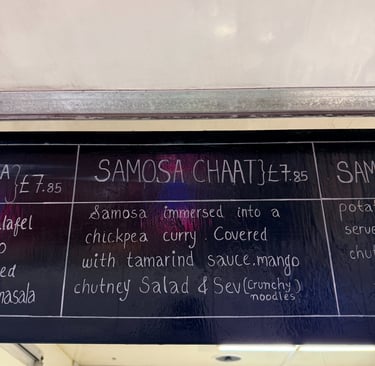 A} £7.85
alafel
o
ed
masala
SAMOSA CHAAT} £7.85
Samosa immersed into a
chickpea curry. Covered
with tamarind sauce, mango
chutney Salad & Sev (crunchy
noodles)
SAM
potat
serve
chut